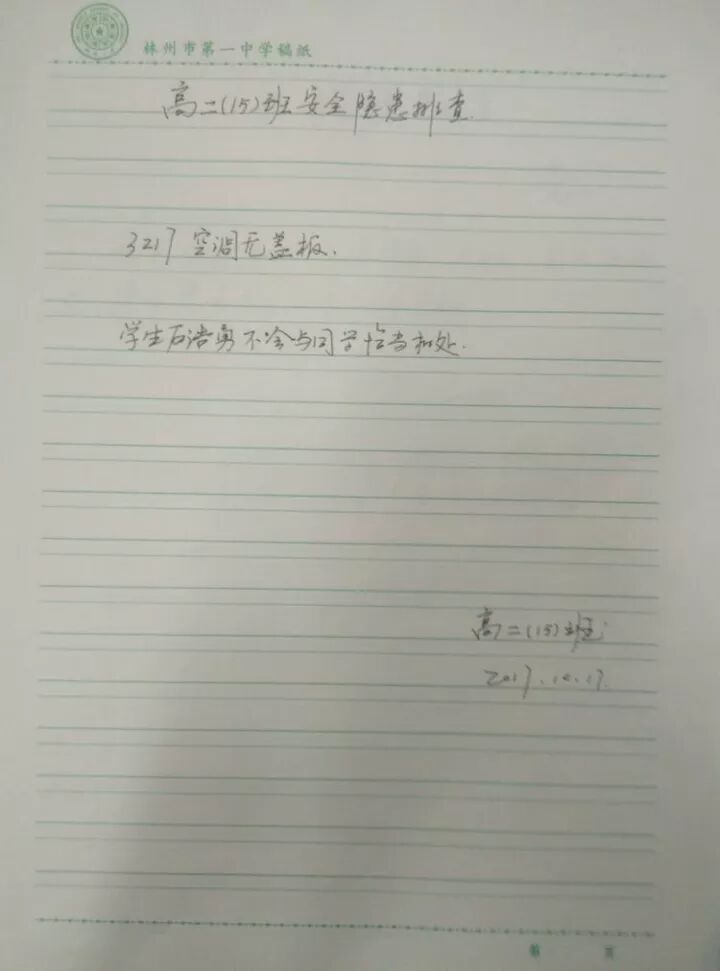 林州市第一中学稿纸
高二(15)班安全隐患排查.
3217 空调无盖板.
学生石浩勇不会与同学恰当相处.
高二(15)班
2017.10.17.
第 页